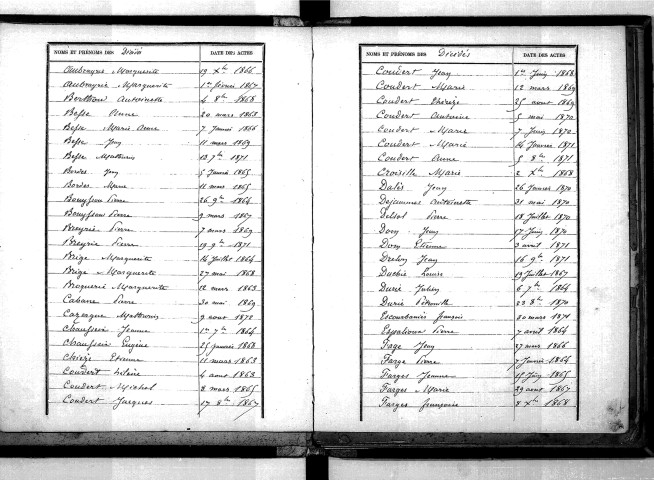 NOMS ET PRÉNOMS DES Décédés DATE DES ACTES
Aubrayrie Marguerite 19 Xbre 1866
Aubrayrie Marguerite 1er février 1867
Berthou Antoinette 4 8bre 1868
Besse Anne 20 mars 1868
Besse Marie Anne 7 Janvier 1866
Besse Jean 11 mars 1869
Besse Mathurin 13 7bre 1871
Bordes Jean 5 Janvier 1865
Bordes Marie 11 mars 1865
Bouyssou Pierre 26 9bre 1864
Bouyssou Pierre 9 mars 1867
Breyrie Pierre 7 mars 1869
Breyrie Pierre 19 9bre 1871
Brige Marguerite 14 Juillet 1864
Brige Marguerite 27 mai 1868
Broquerie Marguerite 12 mars 1863
Cabane Pierre 30 mai 1869
Cazergue Mathurin 9 aout 1872
Chaussein Jeanne 1er 7bre 1864
Chaussein Eugène 25 janvier 1868
Chièze Etienne 11 mars 1863
Coudert hélène 4 aout 1863
Coudert Michel 8 mars 1865
Coudert Jacques 17 8bre 1867
NOMS ET PRÉNOMS DES Décédés DATE DES ACTES
Coudert Jean 1er Juin 1868
Coudert Marie 12 mars 1869
Coudert thérèze 25 aout 1869
Coudert Antoine 5 mai 1870
Coudert Marie 7 Juin 1870
Coudert Marie 14 Janvier 1871
Coudert Anne 5 8bre 1871
Croisille Marie 2 Xbre 1868
Dalès Jean 26 Janvier 1870
Dejammes Antoinette 31 mai 1870
Delsol Pierre 18 Juillet 1870
Dom Jean 17 Juin 1870
Dom Etienne 3 avril 1871
Jean 16 9bre 1871
Duchié Louise 19 Juillet 1867
Durié Julien 6 7bre 1864
Durié Pétronille 23 8bre 1870
Escourbaniès françois 20 mars 1871
Espalioux Pierre 7 avril 1864
Fage Jean 27 mars 1866
Farge Pierre 7 Janvier 1864
Farges Jeanne 15 Juin 1865
Farges Marie 29 aout 1867
Farges françoise 8 Xbre 1868